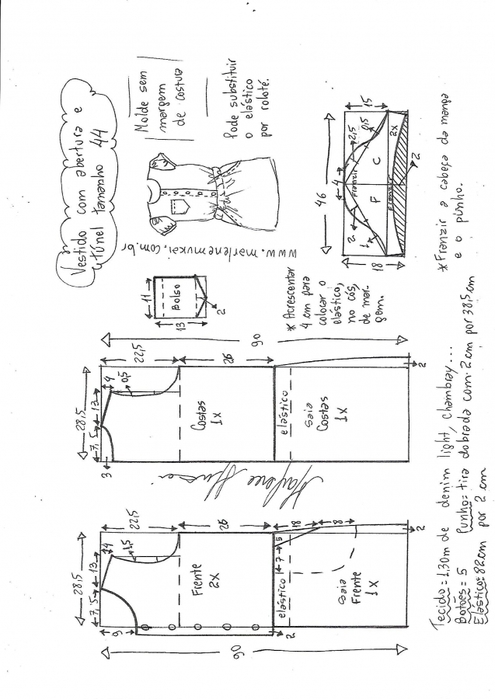 Vestido com abertura e
túnel tamanho 44
Molde sem
margem
de costura
Pode substituir
o elástico
por roloté.
www.marlenemukai.com.br
46
4
2,5
0,5
15
franzir
2
F
C
2x
18
2
* Franzir a cabeça da manga
e o punho.
11
Bolso
13
2
* Acrescentar
4 cm para
colocar o
elástico,
no cós,
de mar-
gem.
90
28,5
7,5
13
4
0,5
22,5
3
Costas
1x
26
elástico
Saia
Costas
1x
2
Marlene Mukai
28,5
7,5
13
4
1,5
22,5
9
Frente
2x
26
elástico
7
5
18
18
Saia
Frente
1x
2
2
90
Tecido=1.30m de denim light, chambray...
Botões=5 Punho=tira dobrada com 2cm por 38,5cm
Elástico=82cm por 2 cm